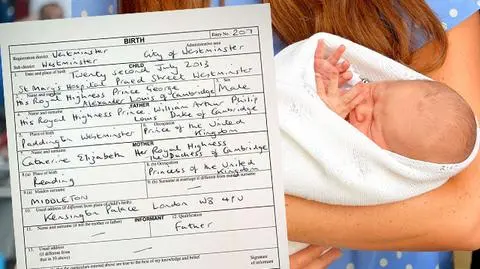 BIRTH
Entry No. 207
Registration district Westminster Administrative area
Sub-district Westminster City of Westminster
CHILD
1. Date and place of birth Twenty second July 2013
St Mary's Hospital Praed Street Westminster
2. Name and surname
His Royal Highness Prince George
Alexander Louis of Cambridge
Male
FATHER
4. Name and surname
His Royal Highness Prince William Arthur Philip
Louis Duke of Cambridge
5. Place of birth
Paddington Westminster
6. Occupation
Prince of the United
Kingdom
MOTHER
7. Name and surname
Catherine Elizabeth Her Royal Highness
The Duchess of Cambridge
8.(a) Place of birth
Reading
8.(b) Occupation
Princess of the United
Kingdom
9.(a) Maiden surname
MIDDLETON
9.(b) Surname at marriage if different from maiden surname
10. Usual address (if different from place of child's birth)
Kensington Palace London W8 4PU
INFORMANT
11. Name and surname (if not the mother or father)
12. Qualification
Father
13. Usual address
(if different from
that in 10 above)
are true to the best of my knowledge and belief
Signature
of informant